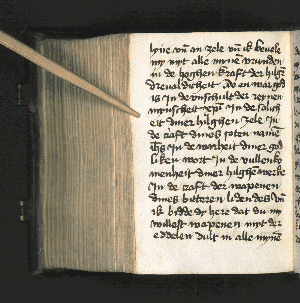 lyue vn̄ an zele vn̄ ik beuele
my myt alle myne vrunden
in de hoghen kraft der hilgē
dreualdicheit Vo en war god
is In de vnschult der reynen
mynscheit xp̄i In de salich
eit diner hilghen zele In
de craft dines soten name
ih̄s In de warheit diner god
liken wort In de vullenko
menheit diner hilghē werke
In de craft der wapenen
dines bitteren lidendes vn̄
ik bidde dy here dat du my
willest wapenen myt der
eddelen dult in alle myne